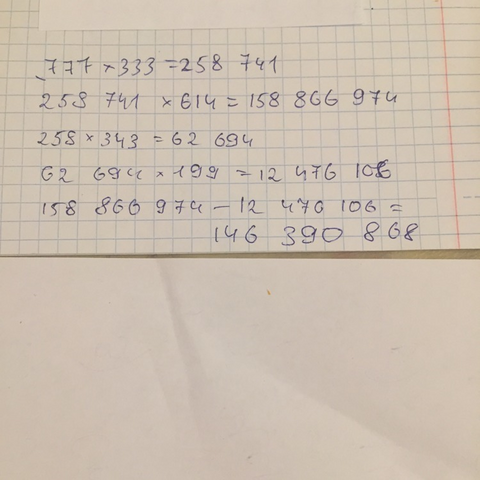 777 × 333 = 258 741
258 741 × 614 = 158 866 974
258 × 343 = 62 694
62 694 × 199 = 12 476 106
158 866 974 - 12 476 106 =
146 390 868